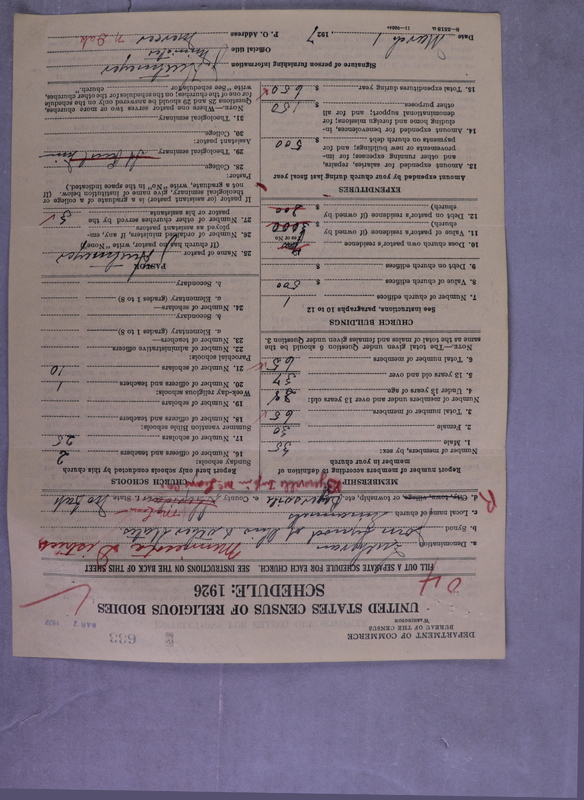 633
DEPARTMENT OF COMMERCE
BUREAU OF THE CENSUS
WASHINGTON
MAR 2 1927
UNITED STATES CENSUS OF RELIGIOUS BODIES
SCHEDULE: 1926
FILL OUT A SEPARATE SCHEDULE FOR EACH CHURCH. SEE INSTRUCTIONS ON THE BACK OF THIS SHEET
a. Denomination Lutheran
b. Synod Synod of Ohio & other States
c. Local name of church
d. City, town, village, or township, etc.
e. County
State No Dak
MEMBERSHIP
Report number of members according to definition of member in your church
Number of members, by sex:
1. Male 35
2. Female 30
3. Total number of members 65
Number of members under and over 13 years old:
4. Under 13 years of age
5. 13 years old and over
6. Total number of members 65
NOTE.—The total given under Question 6 should be the same as the total of males and females given under Question 3.
CHURCH BUILDINGS
See instructions, paragraphs 10 to 12
7. Number of church edifices 1
8. Value of church edifices $ 500
9. Debt on church edifices $
10. Does church own pastor's residence
(Yes or No)
11. Value of pastor's residence (if owned by church) $ 3000
12. Debt on pastor's residence (if owned by church) $ 800
EXPENDITURES
Amount expended by your church during last fiscal year
13. Amount expended for salaries, repairs, and other running expenses; for improvements or new buildings; and for payments on church debt $ 500
14. Amount expended for benevolences, including home and foreign missions; for denominational support; and for all other purposes $ 150
15. Total expenditures during year $ 650
CHURCH SCHOOLS
Report here only schools conducted by this church
Sunday schools:
16. Number of officers and teachers 2
17. Number of scholars 25
Summer vacation Bible schools:
18. Number of officers and teachers
19. Number of scholars
Week-day religious schools:
20. Number of officers and teachers 1
21. Number of scholars 10
Parochial schools:
22. Number of administrative officers
23. Number of teachers—
a. Elementary (grades 1 to 8)
b. Secondary
24. Number of scholars—
a. Elementary (grades 1 to 8)
b. Secondary
PASTOR
25. Name of pastor
(If church has no pastor, write "None")
26. Number of ordained ministers, if any, employed as assistant pastors
27. Number of other churches served by the pastor or his assistants
If pastor (or assistant pastor) is a graduate of a college or theological seminary, give name of institution below. (If not a graduate, write "No" in the space indicated.)
Pastor:
28. College
29. Theological seminary
Assistant pastor:
30. College
31. Theological seminary
NOTE.—Where one pastor serves two or more churches, Questions 28 and 29 should be answered only on the schedule for one of the churches; on the schedules for the other churches, write "See schedule for church."
Signature of person furnishing information
Official title minister
P. O. Address Mercer N. Dak
Date March 1 , 1927